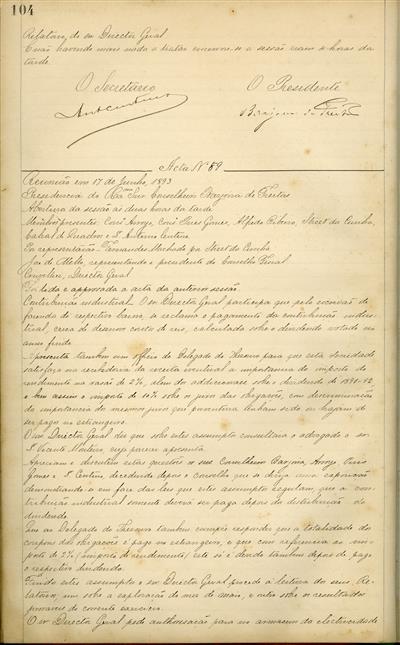 104
Relatorio, do snr Director Geral
E não havendo mais nada a tratar encerrou-se a sessão eram 4 horas da
tarde
O Secretario O Presidente
Acta Nº 89
Reunião em 17 de Junho, 1893
Presidencia do Exmo Snr Conselheiro Barjona de Freitas
Abertura da sessão ás duas horas da tarde
Membros presentes, Conº Arroyo, Conº Pires Gomes, Alfredo Ribeiro, Street da Cunha,
Cabral de Quadros e S. Antonio Centeno
Em representação Fernandes Machado por Street da Cunha
José de Mello, representando o presidente do Conselho Fiscal
Director Geral
Foi lida e approvada a acta da anterior sessão
Contribuição industrial. O snr Director Geral participa que pelo escrivão de
fazenda do respectivo bairro, se reclama o pagamento da contribuição indus-
trial, cerca de desanove contos de reis, calculada sobre o dividendo votado no
anno findo
Apresenta tambem um officio do Delegado do Thesouro para que esta sociedade
satisfaça na recebedoria da receita eventual a importancia do imposto de
rendimento na rasão de 2%, alem do addicional sobre o dividendo de 1891-92
e bem assim o imposto de 10% sobre o juro das obrigações, com descriminação
da importancia do mesmo juro que porventura tenham sido ou hajam de
ser pago no estrangeiro.
O snr Director Geral diz que sobre estes assumptos consultára o advogado o snr
Dr Vicente Monteiro, cujo parecer apresenta
Apreciam e discutem estas questões os snrs Conselheiros Barjona, Arroyo, Pires
Gomes e Dr Centeno, decidindo depois o conselho que se dirija uma exposição
demonstrando-se em face das leis que estes assumptos regulam que a con-
tribuição industrial somente deverá ser paga depois da distribuição do
dividendo.
Que ao Delegado do Thesouro tambem cumpre responder que a totalidade dos
coupons das obrigações é pago no estrangeiro, e que com referencia ao im-
posto de 2% (imposto de rendimento) este só é devido tambem depois de pago
o respectivo dividendo.
Findo estes assumptos o snr Director Geral procede á leitura do seus Re-
latorios, um sobre a exploração do mez de maio, e outro sobre os resultados
provaveis do corrente exercicio.
O snr Director Geral pede authorisação para no armazem da electricidade